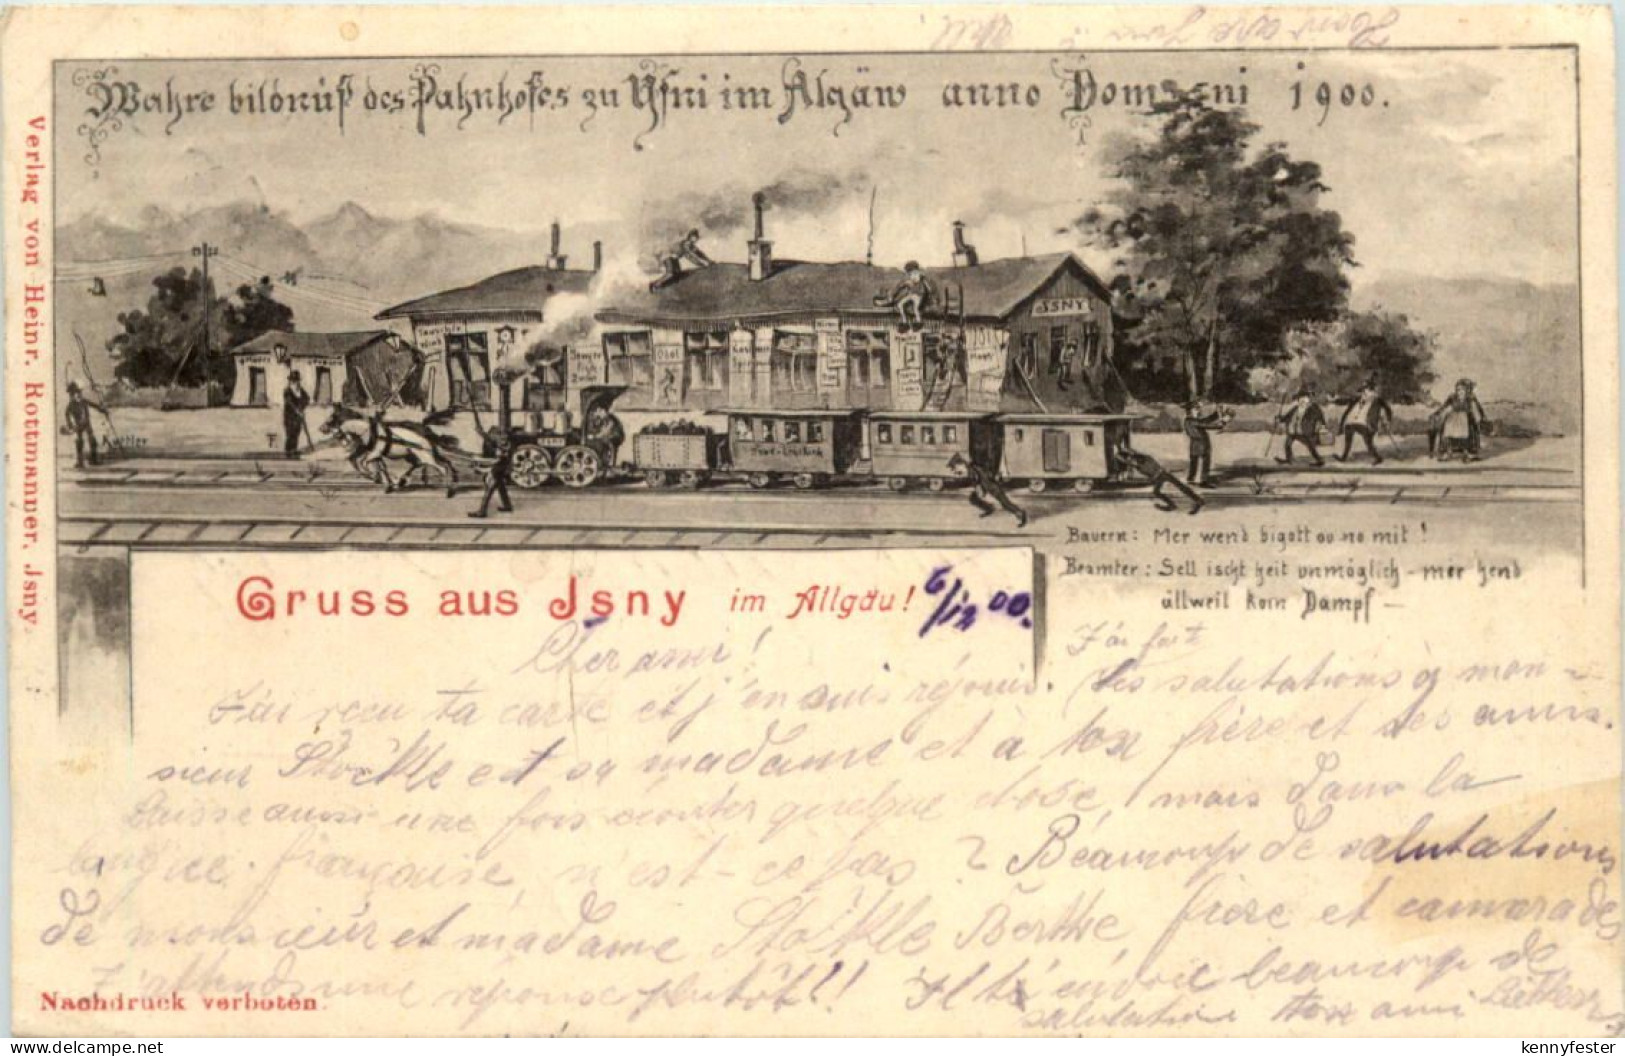 Wahre bildnuß des Pahnhofes zu Ysni im Algäw anno Domini 1900.
Verlag von Heinr. Rottmanner, Jsny.
JSNY
Obst
Bauern: Mer wend bigott ou no mit!
Beamter: Sell ischt heit unmöglich - mer hend
allweil koin Dampf -
Gruss aus Jsny im Allgäu! 6/12 00.
Cher ami!
J'ai reçu ta carte et j'en suis réjouis. J'ai fait
les salutations à mon-
sieur Stökle et sa madame et à ton frère et tes amis.
Laisse aussi une fois écouter quelque chose, mais dans la
langue française, n'est-ce pas? Beaucoup de salutations
de monsieur et madame Stökle Berthe, frère et camarades
J'attends une réponse plutôt!! Il t'envoie beaucoup de
salutation ton ami
Nachdruck verboten.
kennyfester